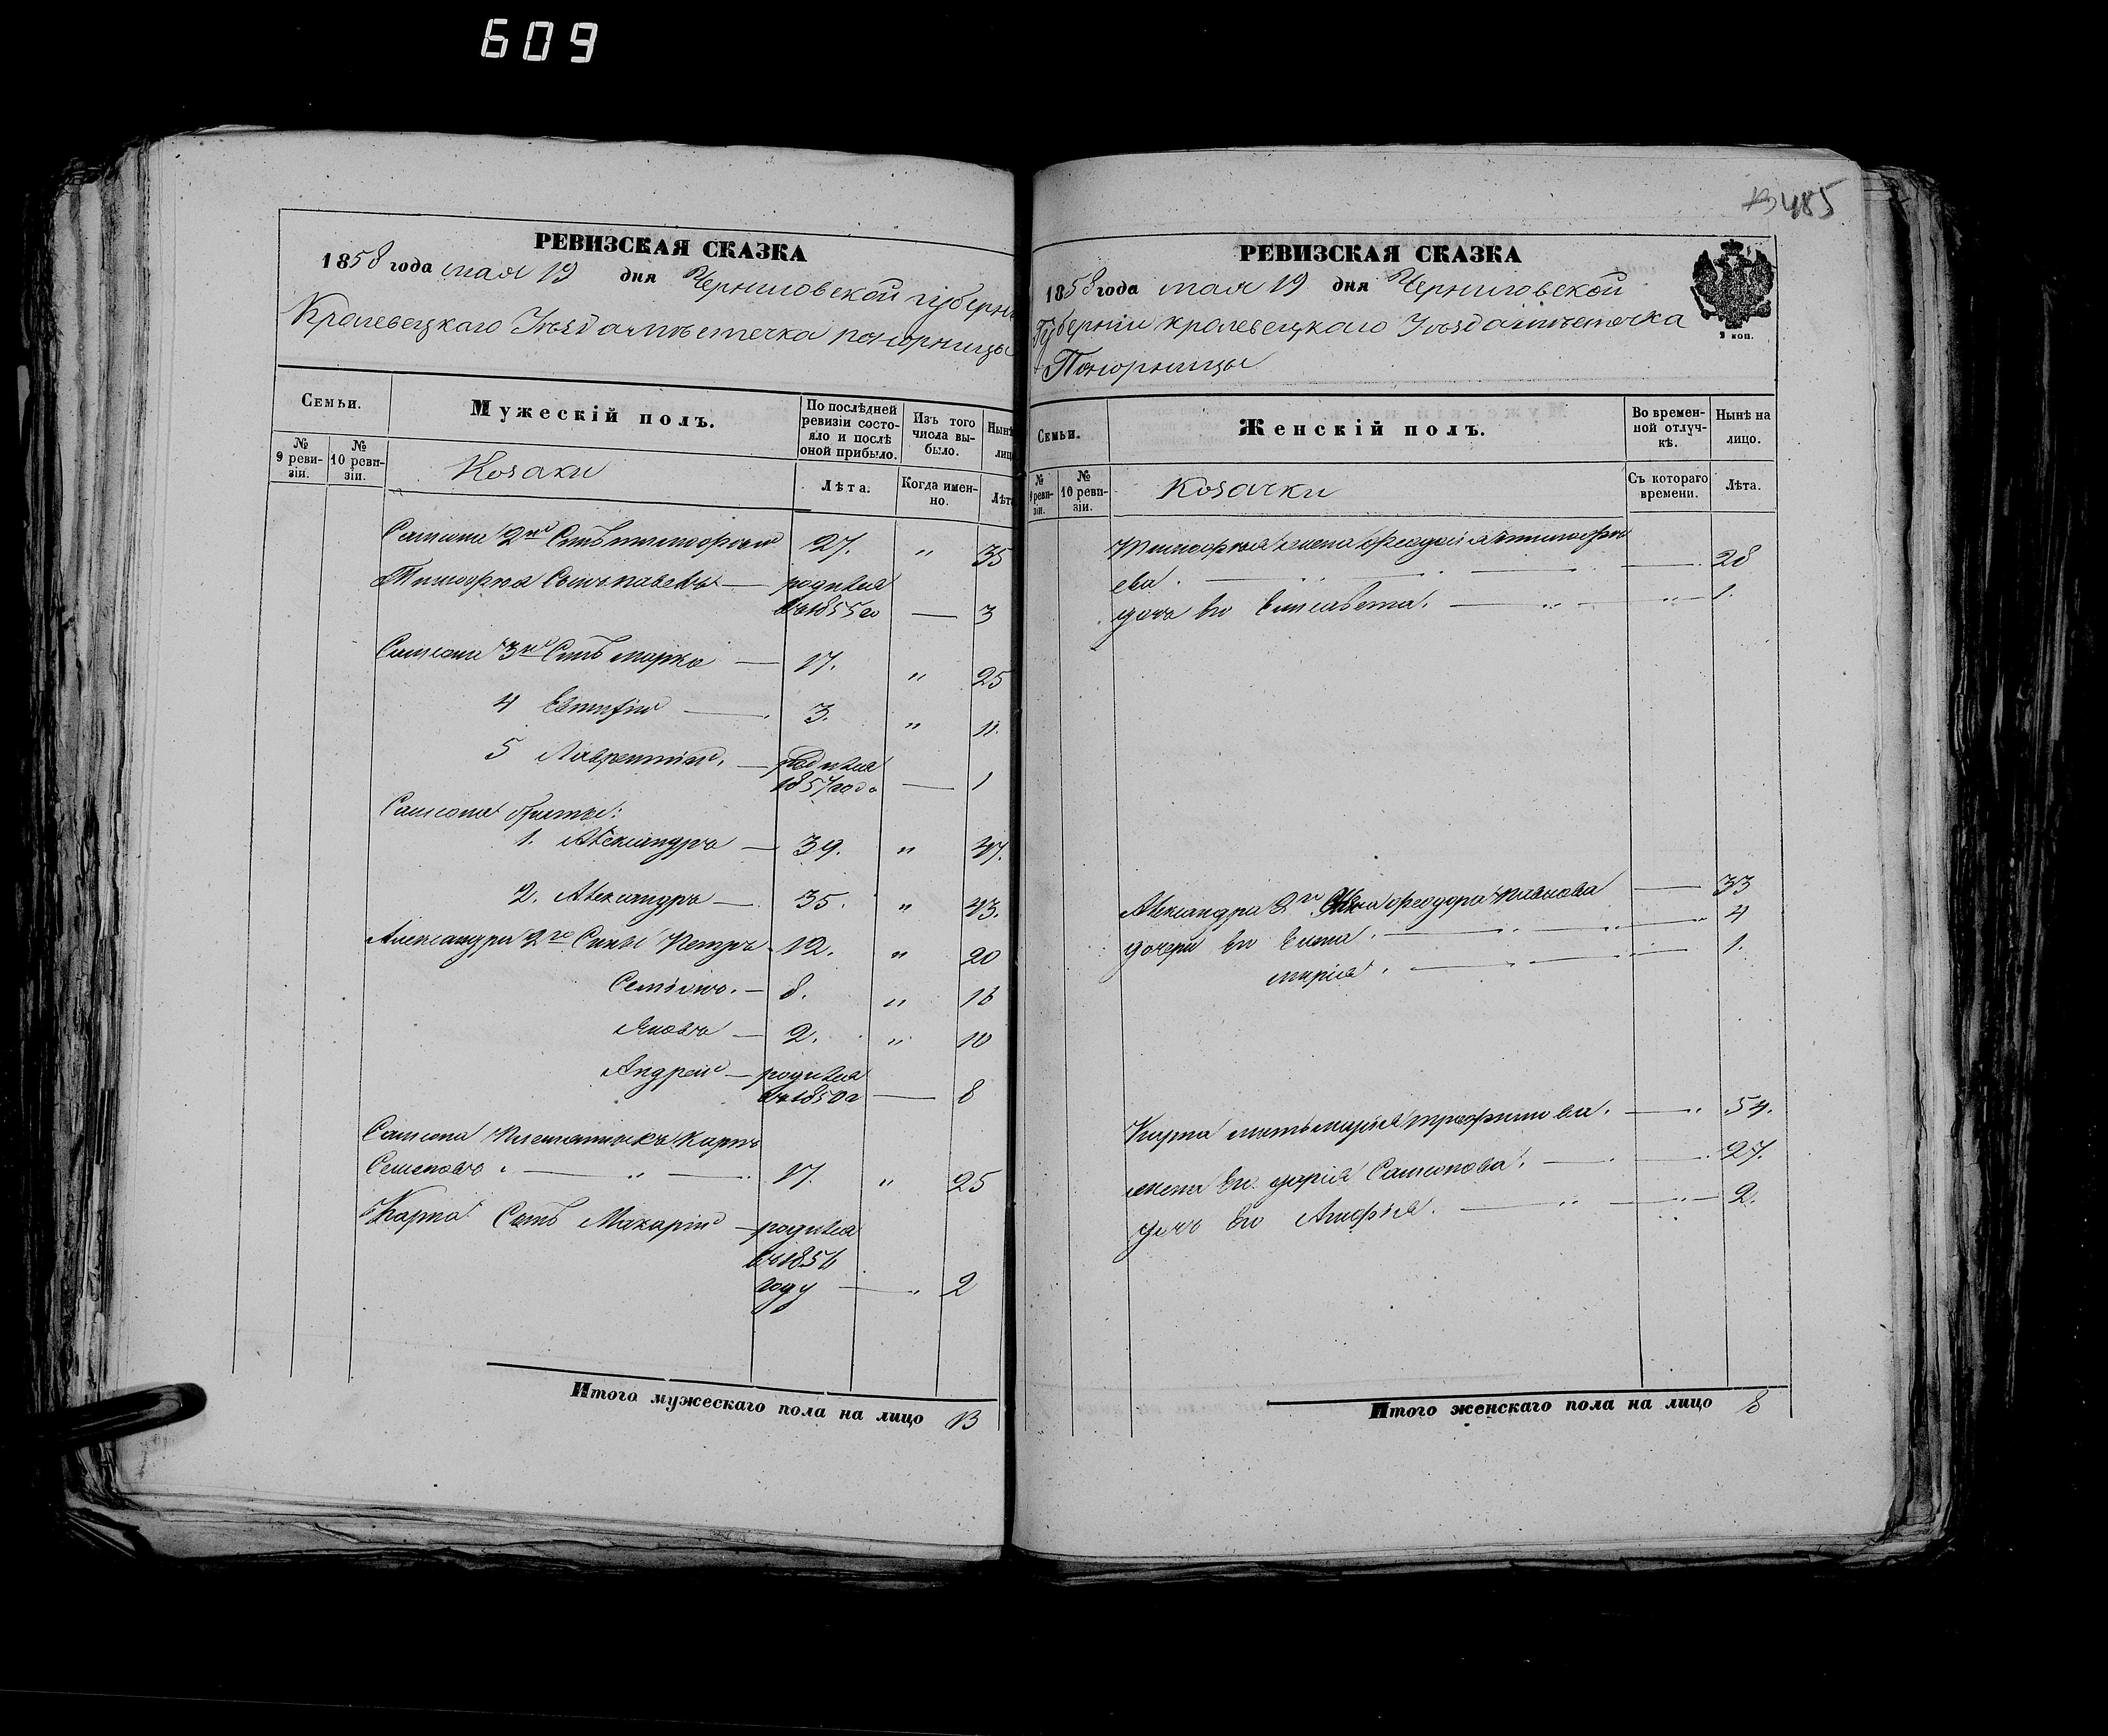 609
РЕВИЗСКАЯ СКАЗКА
1858 года мая 19 дня Черниговской губерніи
Кролевецкаго Уѣзда мѣстечка понорницы
Семьи.
Мужескій полъ.
По послѣдней ревизіи состояло и послѣ оной прибыло.
Изъ того числа выбыло.
Нынѣ лицо
№ 9 ревизіи.
№ 10 ревизіи.
Козаки
Лѣта.
Когда именно.
Лѣта
Самсона 2й Сынъ тимофей 27. " 35
Тимофея Сынъ павелъ — родился
въ 1855 го — 3
Самсона 3й Сынъ марко — 17. " 25
4 Евтифій — 3. " 11.
5 Лаврентий. — родился
1857 года — 1
Самсона братья:
1. Александръ — 39. " 47.
2. Александръ — 35. " 43.
Александра 2го Сыны Петръ 12. " 20
Семіонъ. — 8. " 16
Яковъ — 2. " 10
Андрей — родился
въ 1850 г — 8
Самсона племянникъ Карпъ
Семеновъ . — " — 17. " 25
Карпа Сынъ Макарій — родился
въ 1856
году — " 2
Итого мужескаго пола на лицо 13
485
РЕВИЗСКАЯ СКАЗКА
1858 года мая 19 дня Черниговской
Губерніи кролевецкаго Уѣзда мѣстечка
Понорницы
9 коп.
Семьи.
Женскій полъ.
Во временной отлучкѣ.
Нынѣ на лицо.
№ 9 ревизіи.
№ 10 ревизіи.
Козачки
Съ котораго времени.
Лѣта.
Тимофея жена тимофе
ева . — 28
дочь его Елисавета. — " — 1.
Александра 2го жена феодора павлова — 33
дочери его — " 4
марія . — 1.
Карпа мать марія трофимова. — " 54.
жена его дарія Самсонова. — 27.
дочь его — " — 2.
Итого женскаго пола на лицо 8